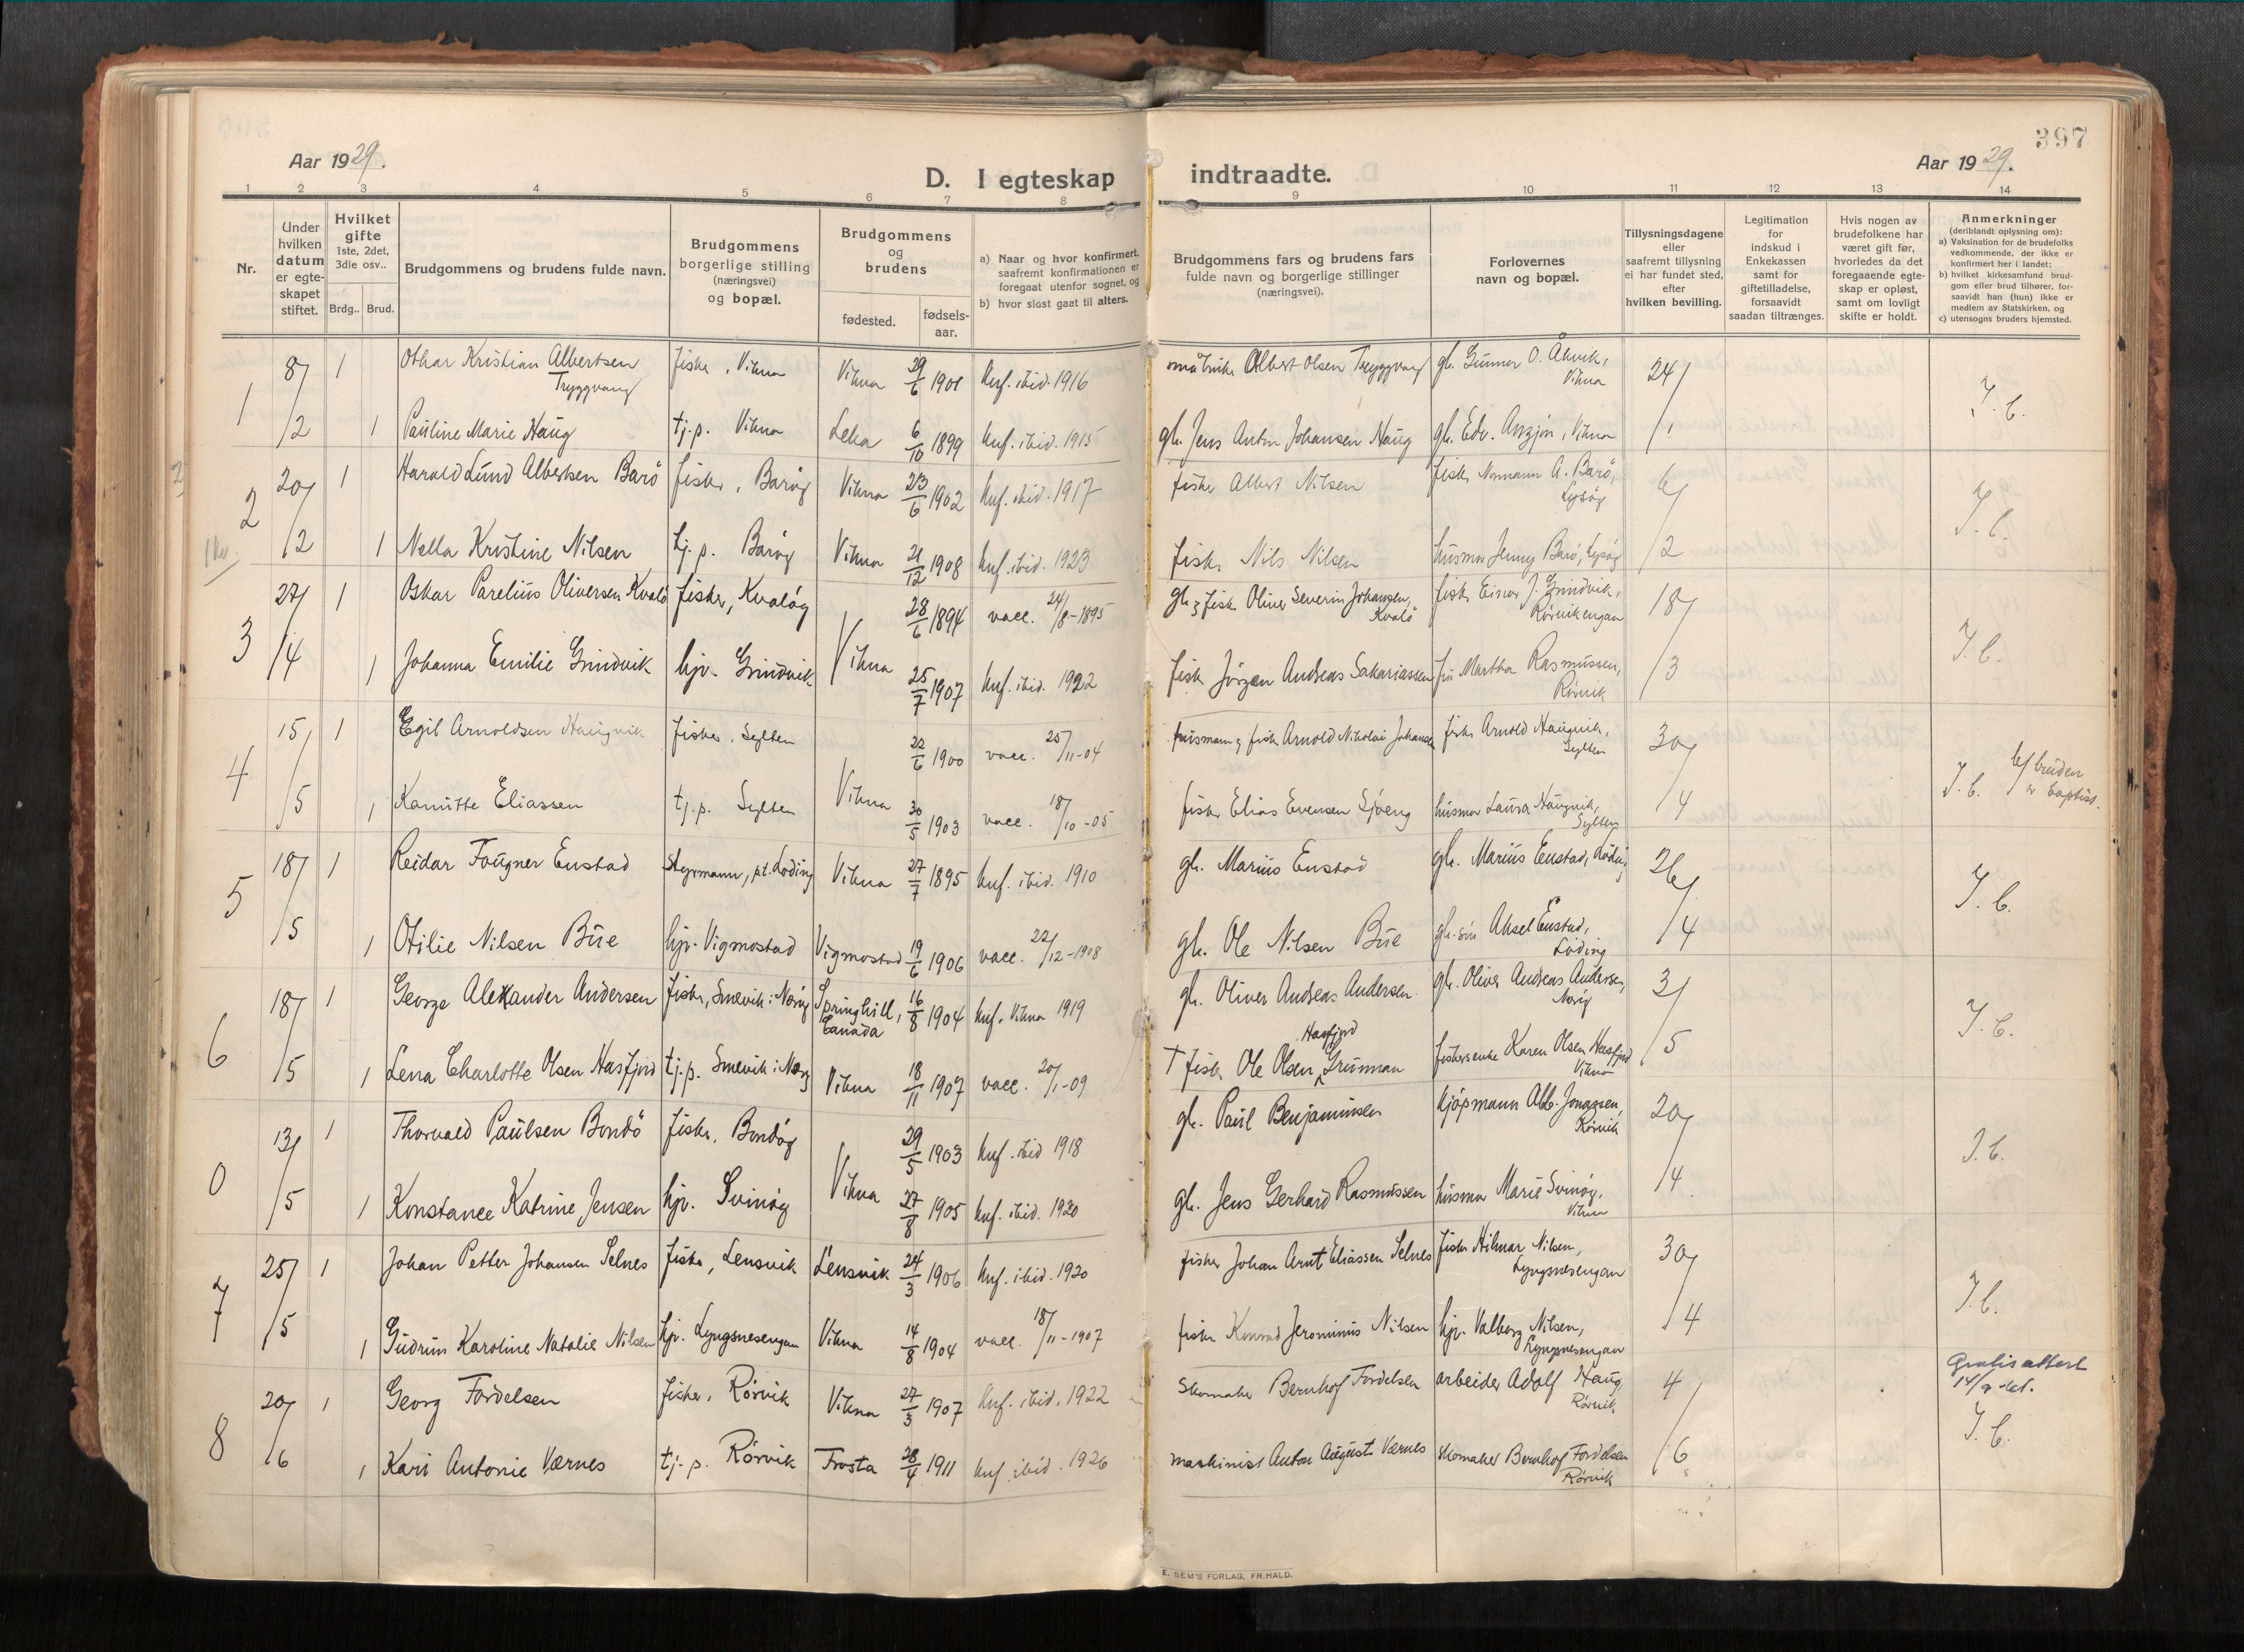 397
Aar 1929.
D. I egteskap indtraadte.
Aar 1929.
1 2 3 4 5 6 7 8 9 10 11 12 13 14
Nr.
Under hvilken datum er egteskapet stiftet.
Hvilket gifte 1ste, 2det, 3die osv..
Brdg.. Brud.
Brudgommens og brudens fulde navn.
Brudgommens borgerlige stilling (næringsvei) og bopæl.
Brudgommens og brudens
fødested.
fødsels-aar.
a) Naar og hvor konfirmert, saafremt konfirmationen er foregaat utenfor sognet, og
b) hvor sidst gaat til alters.
Brudgommens fars og brudens fars fulde navn og borgerlige stillinger (næringsvei).
Forlovernes navn og bopæl.
Tillysningsdagene eller saafremt tillysning ei har fundet sted, efter hvilken bevilling.
Legitimation for indskud i Enkekassen samt for giftetilladelse, forsaavidt saadan tiltrænges.
Hvis nogen av brudefolkene har været gift før, hvorledes da det foregaaende egteskap er opløst, samt om lovligt skifte er holdt.
Anmerkninger (deriblandt oplysning om):
a) Vaksination for de brudefolks vedkommende, der ikke er konfirmert her i landet;
b) hvilket kirkesamfund brudgom eller brud tilhører, forsaavidt han (hun) ikke er medlem av Statskirken, og
c) utensogns bruders hjemsted.
1 8/2 1 Othar Kristian Albertsen Tryggvang fisker, Vikna Vikna 29/6 1901 knf. ibid. 1916 småbruker Albert Olsen Tryggvang gb. Gunnar O. Åkvik, Vikna 24/1 I. b.
1 Pauline Marie Haug tj.p. Vikna Leka 6/10 1899 knf. ibid. 1915 gb. Jens Anton Johansen Haug gb. Edv. Vikna
2 20/2 1 Harald Lund Albertsen Barö fisker, Baröy Vikna 23/6 1902 knf. ibid. 1917 fisker Albert Nilsen fisker Normann A. Barö, Lysöy 6/2 I. b.
1 Nella Kristine Nilsen tj.p. Baröy Vikna 21/12 1908 knf. ibid. 1923 fisker Nils Nilsen husmor Jenny Barö, Lysöy
3 27/4 1 Oskar Parelius Oliversen Kvalö fisker, Kvalöy Vikna 28/6 1894 vacc. 24/8-1895 gb. & fisker Oliver Severin Johansen, Kvalö fisker Einar J. Grindvik, Rørvikengan 18/3 I. b.
1 Johanna Emilie Grindvik hjv. Grindvik 25/7 1907 knf. ibid. 1922 fisker Jörgen Andreas Sakariassen fru Martha Rasmussen, Rørvik
4 15/5 1 Egil Arnoldsen Haugvik fisker, Sylten Vikna 22/6 1900 vacc. 25/11-04 husmann & fisker Arnold Nikolai Johansen fisker Arnold Haugvik, Sylten 30/4 I. b. b/ bruden er baptist.
1 Kamitte Eliassen tj.p. Sylten 30/5 1903 vacc. 18/10-05 fisker Elias Evensen Sjøeng husmor Laura Haugvik, Sylten
5 18/5 1 Reidar Fougner Enstad styrmann, pt. Løding Vikna 27/7 1895 knf. ibid. 1910 gb. Marius Enstad gb. Marius Enstad, Løding 26/4 I. b.
1 Otilie Nilsen Bue hjv. Vigmostad Vigmostad 19/6 1906 vacc. 22/12-1908 gb. Ole Nilsen Bue gb. søn Aksel Enstad, Løding
6 18/5 1 George Alexander Andersen fisker, Smevik i Nærøy Springhill, Canada 16/8 1904 knf. Vikna 1919 gb. Oliver Andreas Andersen gb. Oliver Andreas Andersen, Nærøy 3/5 I. b.
1 Lena Charlotte Olsen Hasfjord tj.p. Smevik i Nærøy Vikna 18/11 1907 vacc. 20/1-09 † fisker Ole Olsen Hasfjord Grunnan fiskerenke Karen Olsen Hasfjord Vikna
0 13/5 1 Thorvald Paulsen Bondö fisker, Bondöy Vikna 29/5 1903 knf. ibid 1918 gb. Paul Benjaminsen kjøpmann Alb. Jonassen, Rørvik 20/4 I. b.
1 Konstance Katrine Jensen hjv. Svinøy 27/8 1905 knf. ibid. 1920 gb. Jens Gerhard Rasmussen husmor Marie Svinøy, Vikna
7 25/5 1 Johan Petter Johansen Selnes fisker, Lensvik Lensvik 24/3 1906 knf. ibid. 1920 fisker Johan Arnt Eliassen Selnes fisker Hilmar Nilsen, Lyngsnesengan 30/4 I. b.
1 Gudrun Karoline Natalie Nilsen hjv. Lyngsnesengan Vikna 14/8 1904 vacc. 18/11-1907 fisker Konrad Jerominus Nilsen hjv. Valborg Nilsen, Lyngsnesengan
8 20/6 1 Georg Fordelsen fisker, Rørvik Vikna 27/3 1907 knf. ibid. 1922 skomaker Bernhof Fordelsen arbeider Adolf Haug, Rørvik 4/6 Gratis attest 14/9-41. I. b.
1 Kari Antonie Værnes tj.p. Rørvik Frosta 28/4 1911 knf. ibid. 1926 maskinist Anton August Værnes skomaker Bernhof Fordelsen Rørvik
E. SEM'S FORLAG, FR.HALD.